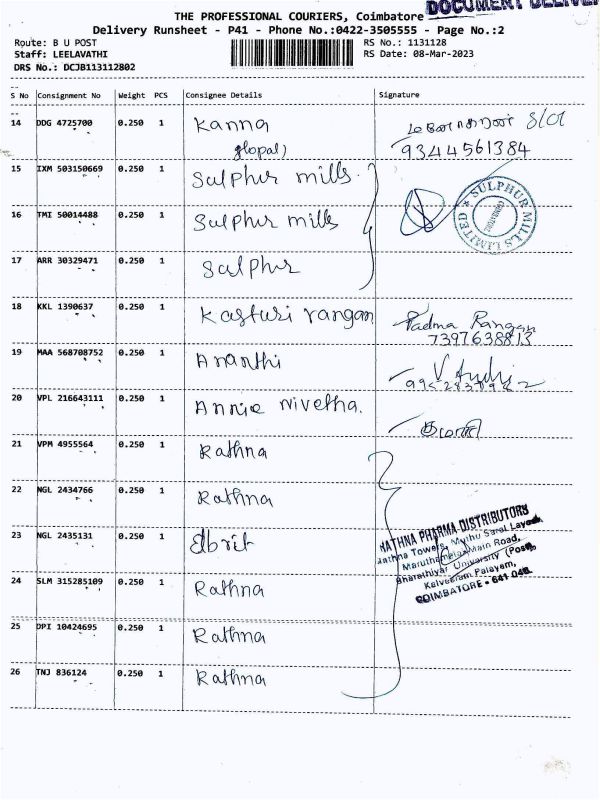 DOCUMENT DELIVER
THE PROFESSIONAL COURIERS, Coimbatore
Delivery Runsheet - P41 - Phone No.:0422-3505555 - Page No.:2
Route: B U POST
RS No.: 1131128
Staff: LEELAVATHI
RS Date: 08-Mar-2023
DRS No.: DCJB113112802
S No Consignment No Weight PCS Consignee Details Signature
14 DDG 4725700 0.250 1 Kanna
gopal)
9344561384
15 IXM 503150669 0.250 1 Sulphur mills.
16 TMI 50014488 0.250 1 Sulphur mills
SULPHUR MILLS LIMITED
COIMBATORE
17 ARR 30329471 0.250 1 Sulphur
18 KKL 1390637 0.250 1 Kasturi rangan Padma Rangan
7397638813
19 MAA 568708752 0.250 1 Ananthi
20 VPL 216643111 0.250 1 Annie nivetha.
21 VPM 4955564 0.250 1 Rathna
22 NGL 2434766 0.250 1 Rathna
23 NGL 2435131 0.250 1 Elbrit
RATHNA PHARMA DISTRIBUTORS
Rathna Towers, Muthu Saral Layout,
Maruthamalai Main Road,
Bharathiyar University (Post),
Kalveeram Palayam,
COIMBATORE - 641 046.
24 SLM 315285109 0.250 1 Rathna
25 DPI 10424695 0.250 1 Rathna
26 TNJ 836124 0.250 1 Rathna